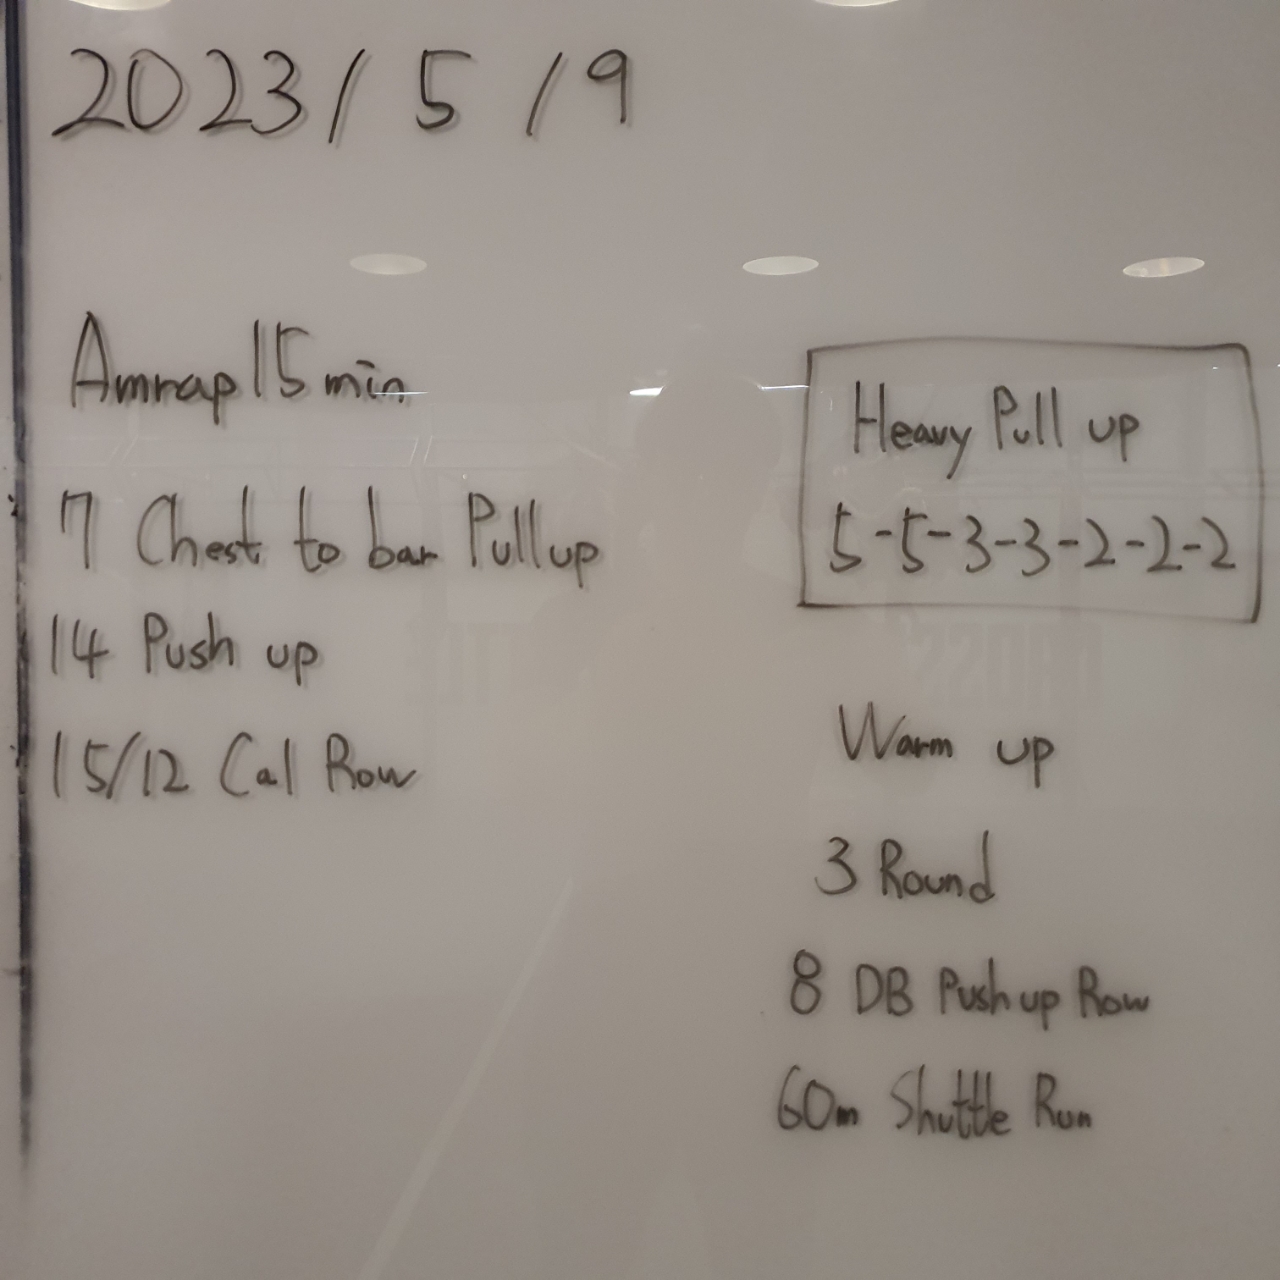 2023/5/9
Amrap 15 min
7 Chest to bar Pull up
14 Push up
15/12 Cal Row
Heavy Pull up
5-5-3-3-2-2-2
Warm up
3 Round
8 DB Push up Row
60m Shuttle Run